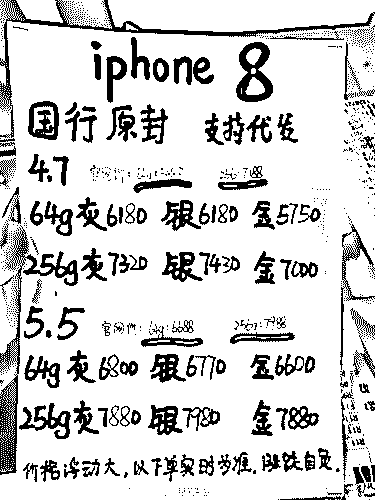 iphone 8
国行原封 支持代发
4.7 官网价: 256g:7188
64g灰6180 银6180 金5750
256g灰7320 银7430 金7000
5.5 官网价: 64g:6688 256g:7988
64g灰6800 银6770 金6600
256g灰7880 银7980 金7880
价格浮动大,以下单实时为准,涨跌自负.